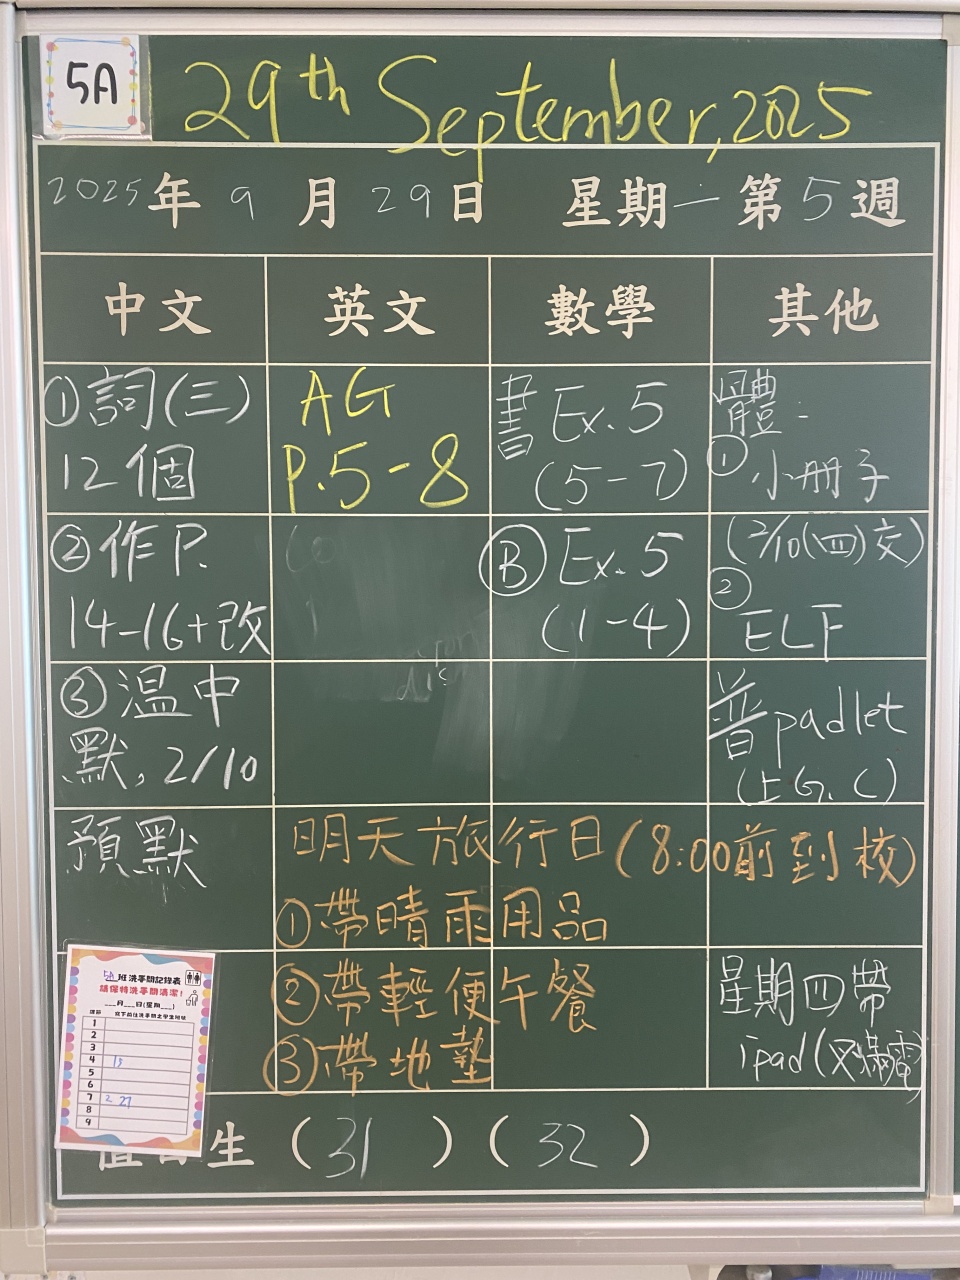 5A
29th September, 2025
2025年 9月 29日 星期一 第5週
中文 英文 數學 其他
①詞(三)
12個
②作P.
14-16+改
③溫中
默, 2/10
AG
P.5-8
書 Ex. 5
(5-7)
Ⓑ Ex. 5
(1-4)
體:
① 小册子
(2/10(四)交)
②
ELF
普 padlet
(上G.C)
預默
明天旅行日(8:00前到校)
①帶晴雨用品
②帶輕便午餐
③帶地墊
星期四帶
ipad(叉滿電)
5A班洗手間記錄表
請保持洗手間清潔!
___月___日(星期___)
課節 寫下前往洗手間之學生班號
1
2
3
4 15
5
6
7 2 27
8
9
生 (31) (32)